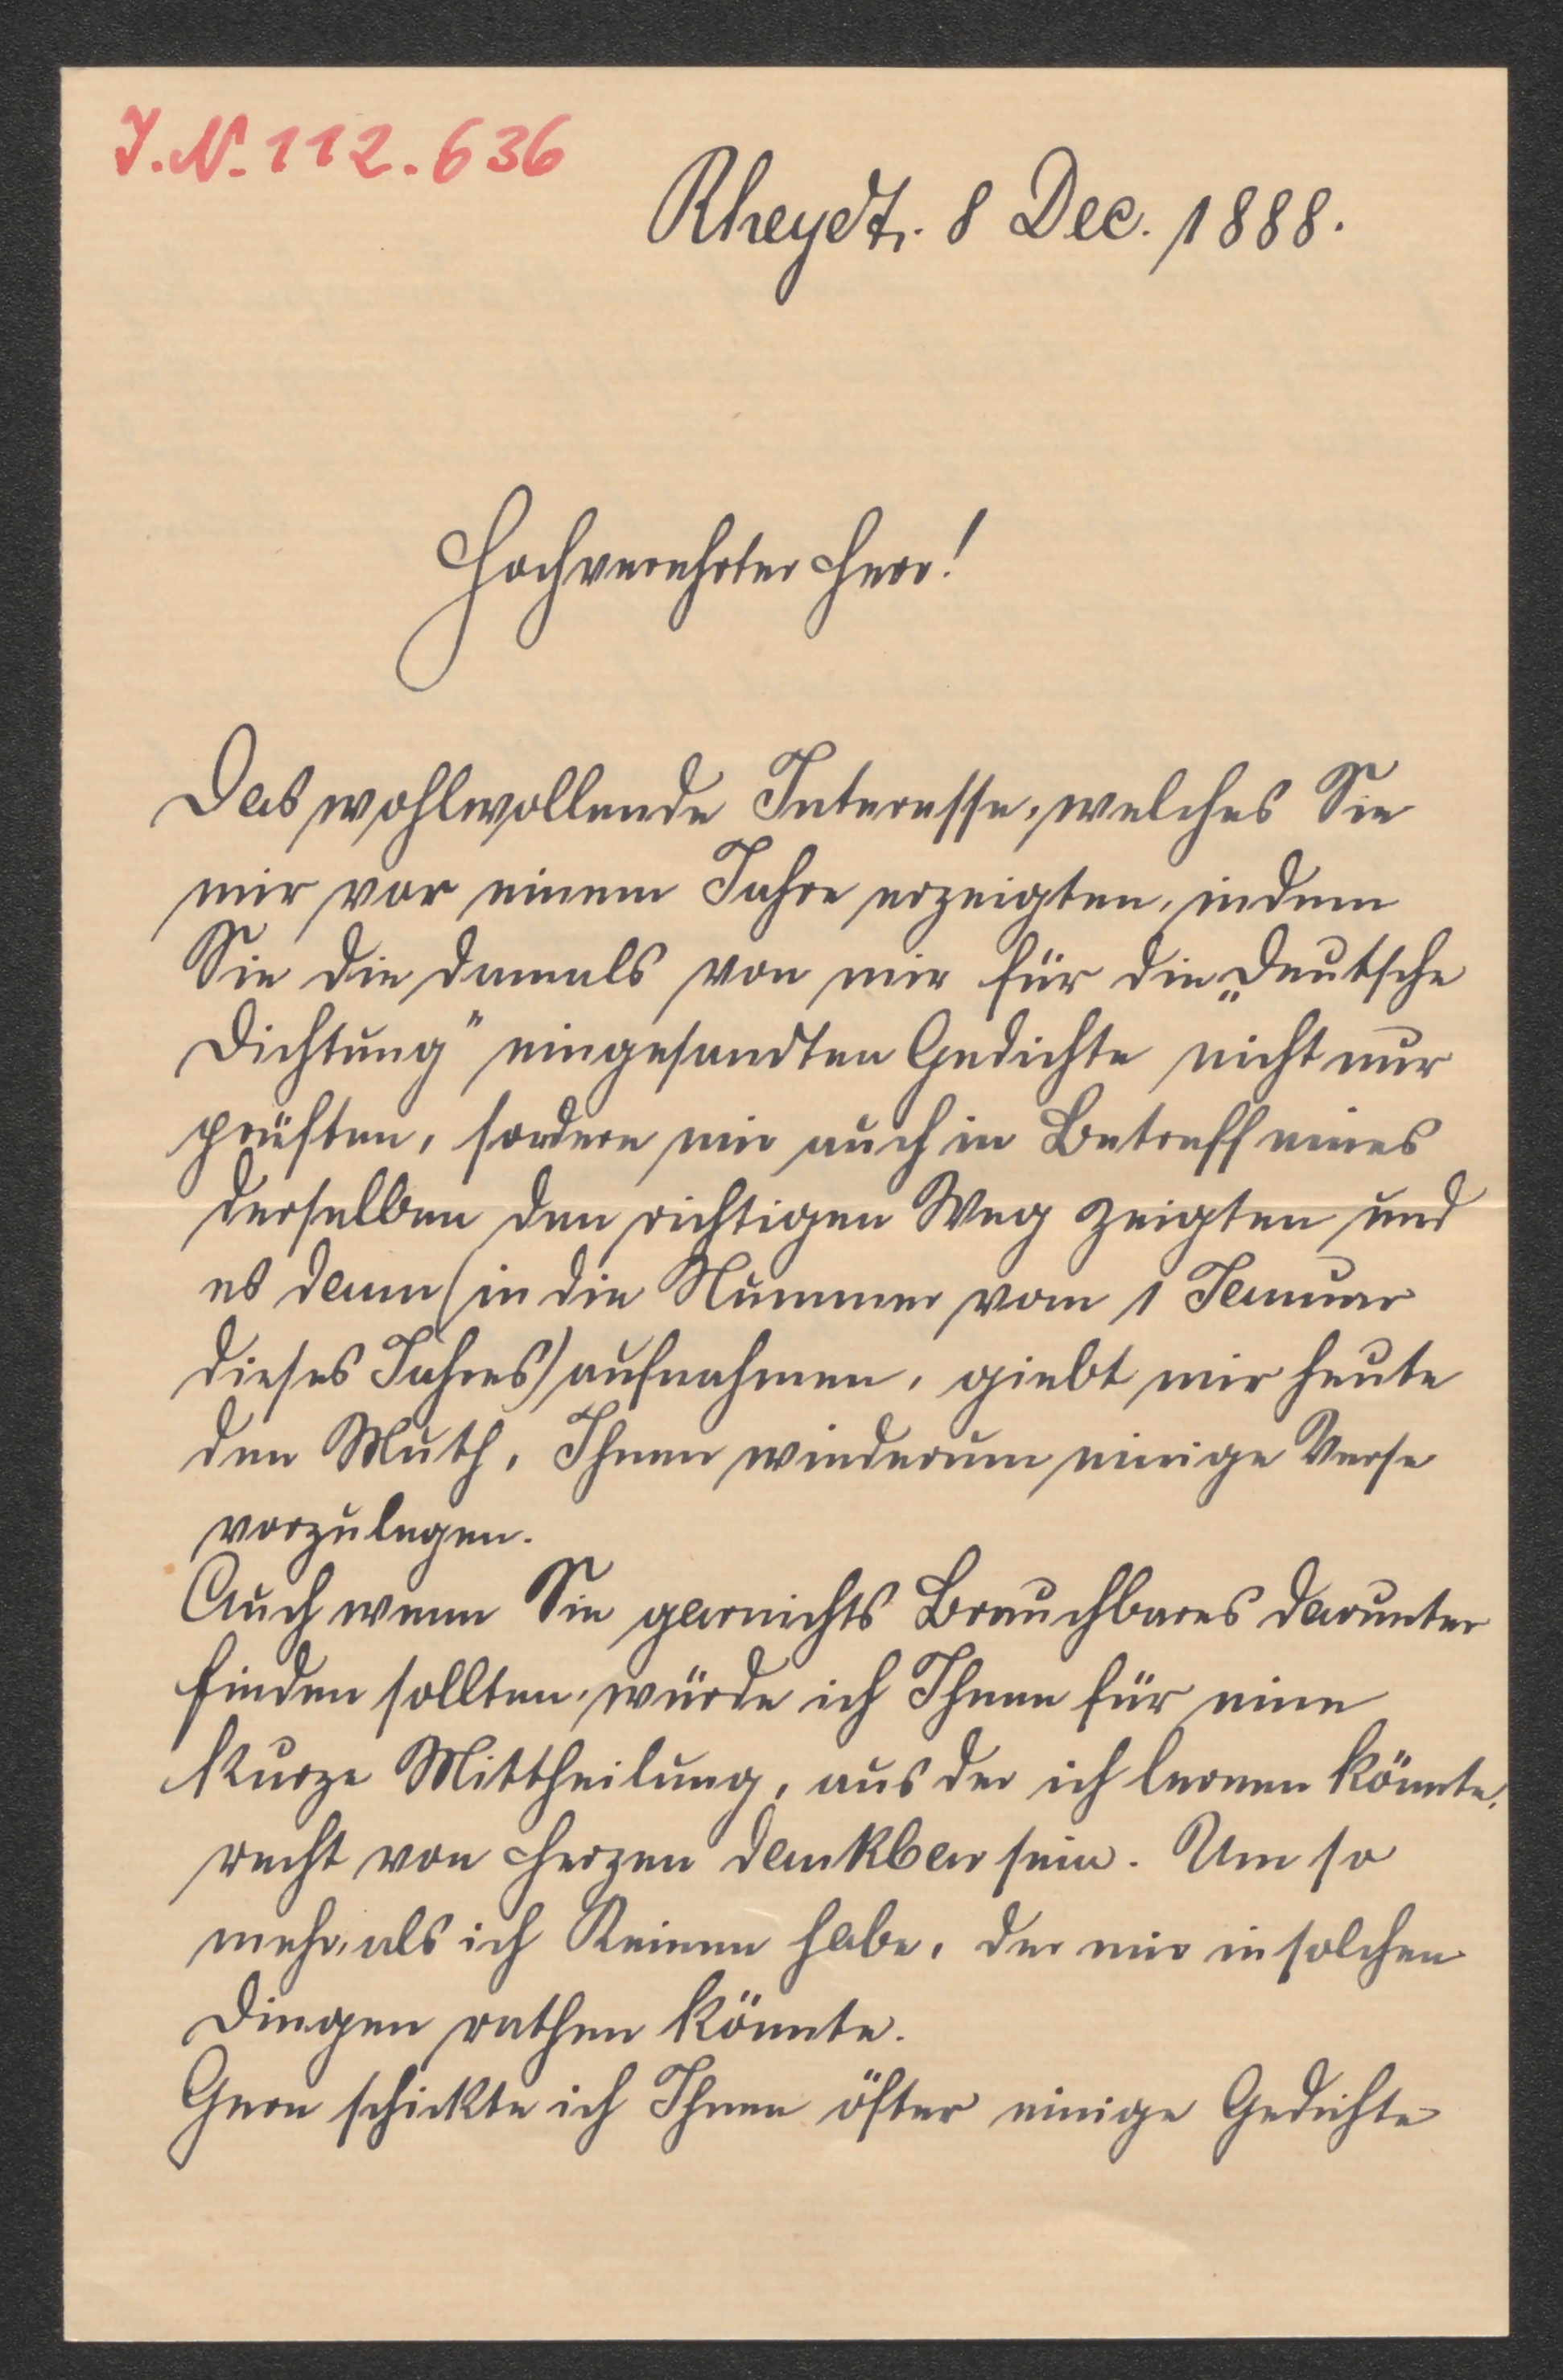 J.N. 112.636
Rheydt. 8 Dec. 1888.
Hochverehrter Herr!
Das wohlwollende Interesse, welches Sie
mir vor einem Jahre erzeigten, indem
Sie die damals von mir für die „Deutsche
Dichtung" eingesandten Gedichte nicht nur
prüften, sondern mir auch in Betreff eines
derselben den richtigen Weg zeigten und
es dann (in die Nummer vom 1 Januar
dieses Jahres) aufnahmen, giebt mir heute
den Muth, Ihnen wiederum einige Verse
vorzulegen.
Auch wenn Sie garnichts Brauchbares darunter
finden sollten, würde ich Ihnen für eine
kurze Mittheilung, aus der ich lernen könnte,
recht von Herzen dankbar sein. Um so
mehr, als ich Keinen habe, der mir in solchen
Dingen rathen könnte.
Gern schickte ich Ihnen öfter einige Gedichte